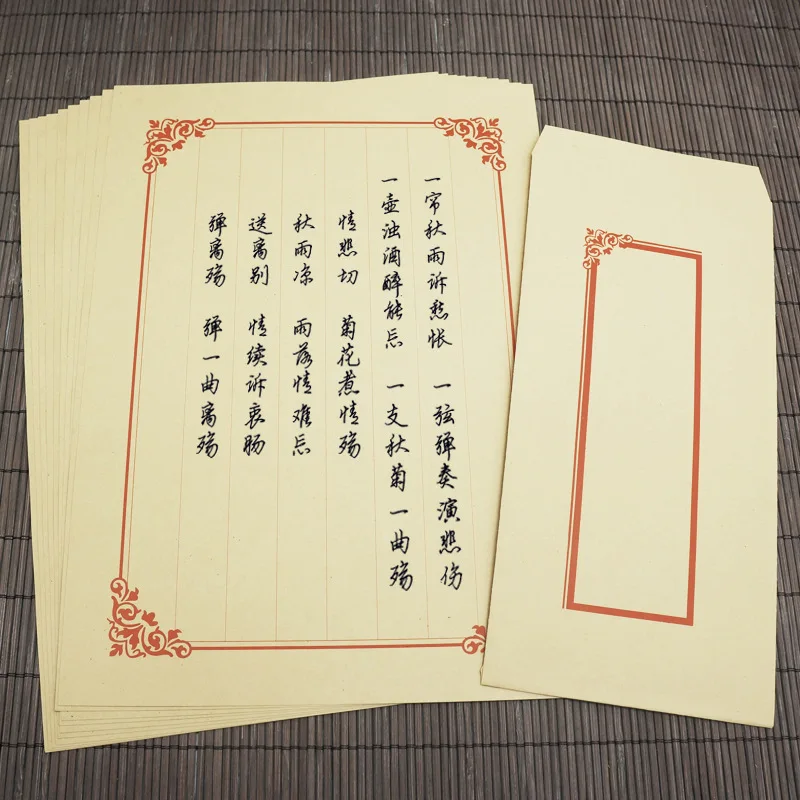 一帘秋雨诉愁怅 一弦弹奏演悲伤
一壶浊酒醉能忘 一支秋菊一曲殇
情悲切 菊花煮情殇
秋雨凉 雨落情难忘
送离别 情续诉衷肠
弹离殇 弹一曲离殇